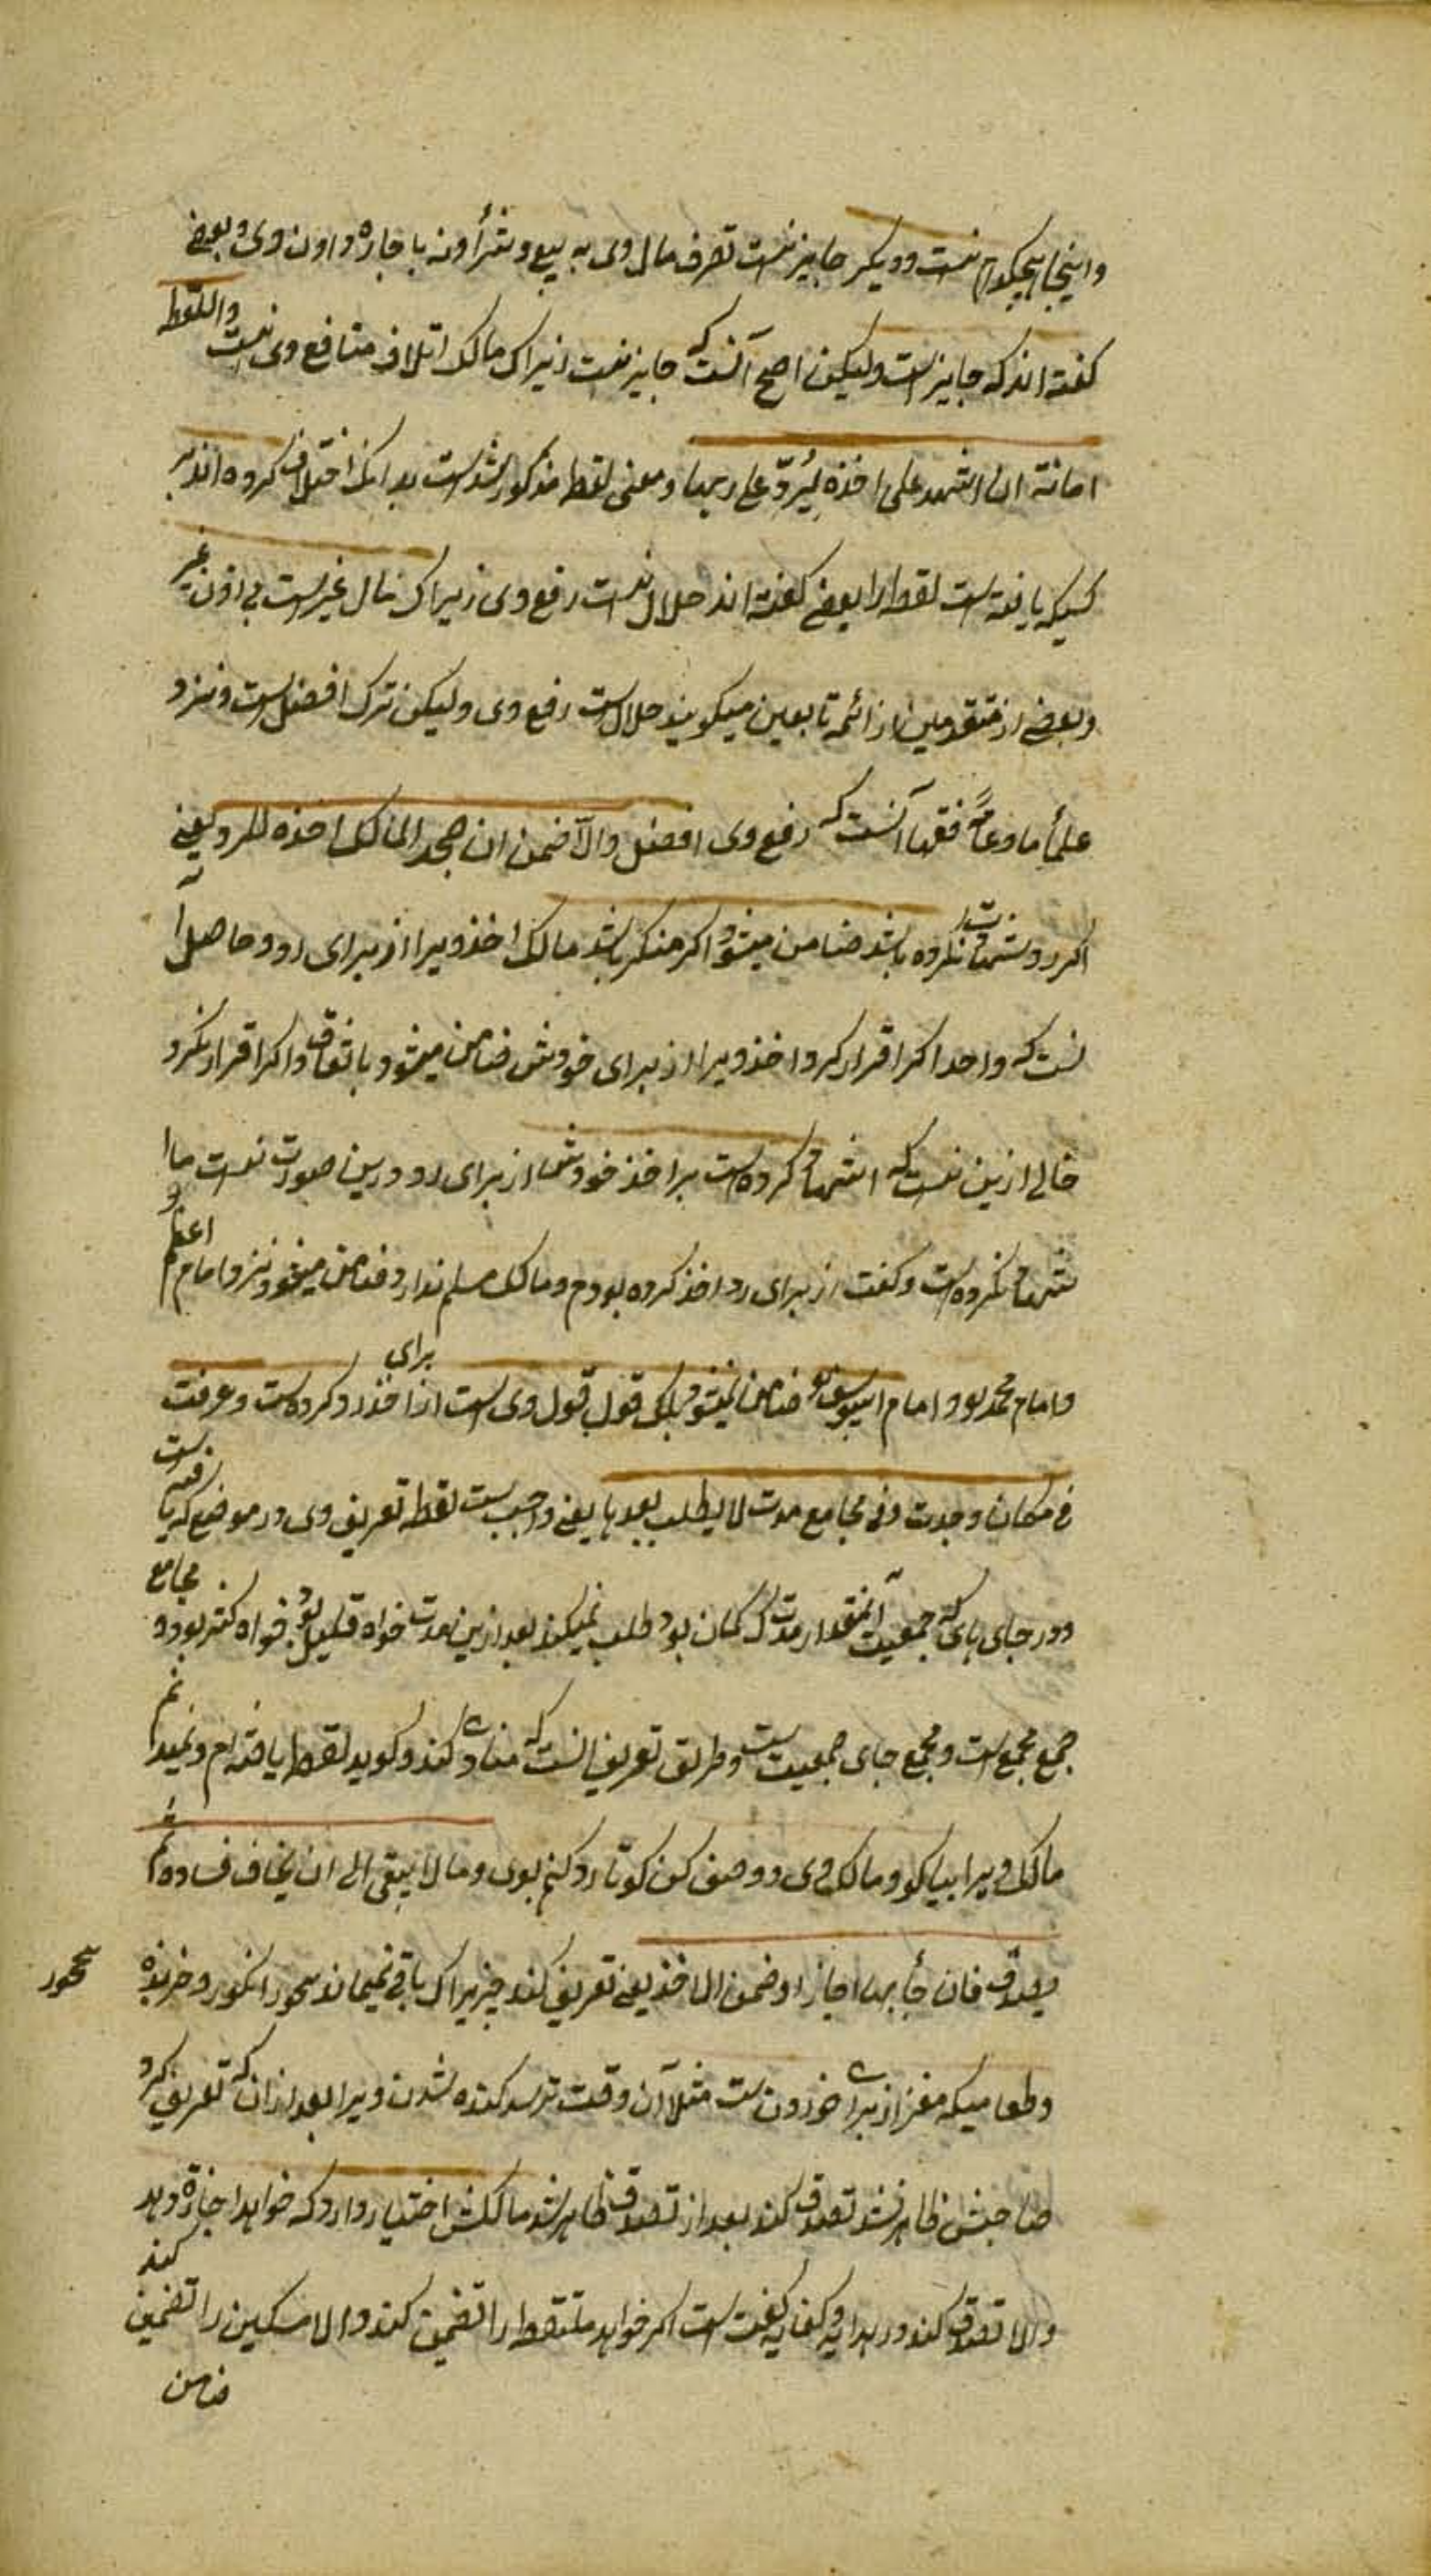 واینجا هیچکدام نیست و دیگر جایز نیست تصرف مال وی به بیع و شرأ و نه باجاره و اون وی و بعضی
گفته اند که جایز است ولیکن اصح آنست که جایز نیست زیراک مالک اتلاف منافع وی نیست واللقطه
امانة ان اشهد علی اخذه لیُردّ علی ربها و معنی لقطه مذکور شد است بدانک اختلاف کرده اند بر
کسیکه یافته است لقطه را بعضی گفته اند حلال نیست رفع وی زیراک مال غیر است بی اذن غیر
و بعضی از متقدمین از ائمه تابعین میگویند حلال است رفع وی ولیکن ترک افضل است و نزد
علمأ ما و عامّه فقها آنست که رفع وی افضل والاّ ضمن ان جحد المالک اخذه للرد یعنی
اگر نکرده باشد ضامن میشود و اگر منکر باشد مالک اخذ ویرا از برای رد و حاصل آ
نست که واحد اگر اقرار کرد اخذ ویرا از برای خودش ضامن میشود باتفاق و اگر اقرار نکرد
خالی ازین نیست که اشهاد کرده است بر اخذ خودش از برای رد درین صورت نیست ما
اشهاد نکرده است و گفت از برای رد اخذ کرده بودم و مالک مسلم ندارد ضامن میشود نزد امام اعظم
و امام محمد بود و امام ابیوسف ضامن نمیشود بلک قول قول وی است از برای اخذ رد کرده است و عرفت
فی مکان وجدت و فی مجامع مدت لا یطلب بعدها یعنی واجب است لقطه تعریف وی در موضع که یافته است
و در جای های که جمعیت آنمقدار مدت ک گمان بود طلب نمیکند بعد ازین مدت خواه قلیل بود خواه کثیر بود و مجامع
جمع مجمع است و مجمع جای جمعیت است و طریق تعریف انست که منادی کند و گوید لقطه یافته ام و نمیدانم
مالک ویرا بیا کو مالک وی و وصف کن کو تا رد کنم بوی و ما لا یبقی الی ان یخاف فساده ثم
یصدق فان جأ ربها اجاز او ضمن الاخذ یعنی تعریف کند چیزیراک باقی نمیماند همچون انگور و خربزه
وطعامیکه مغز از برای خوردن ست مثلا آن وقت ترسد گنده شدن ویرا بعد ازان که تعریف کرد
صاحبش ظاهر نشد تصدق کند بعد از تصدق ظاهر شد مالکش اختیار دارد که خواهد اجازة دهد
والا تصدق کند در هدایه و کفایه گفت است اگر خواهد ملتقط را تضمین کند والا مسکین را تضمین کند
ضامن